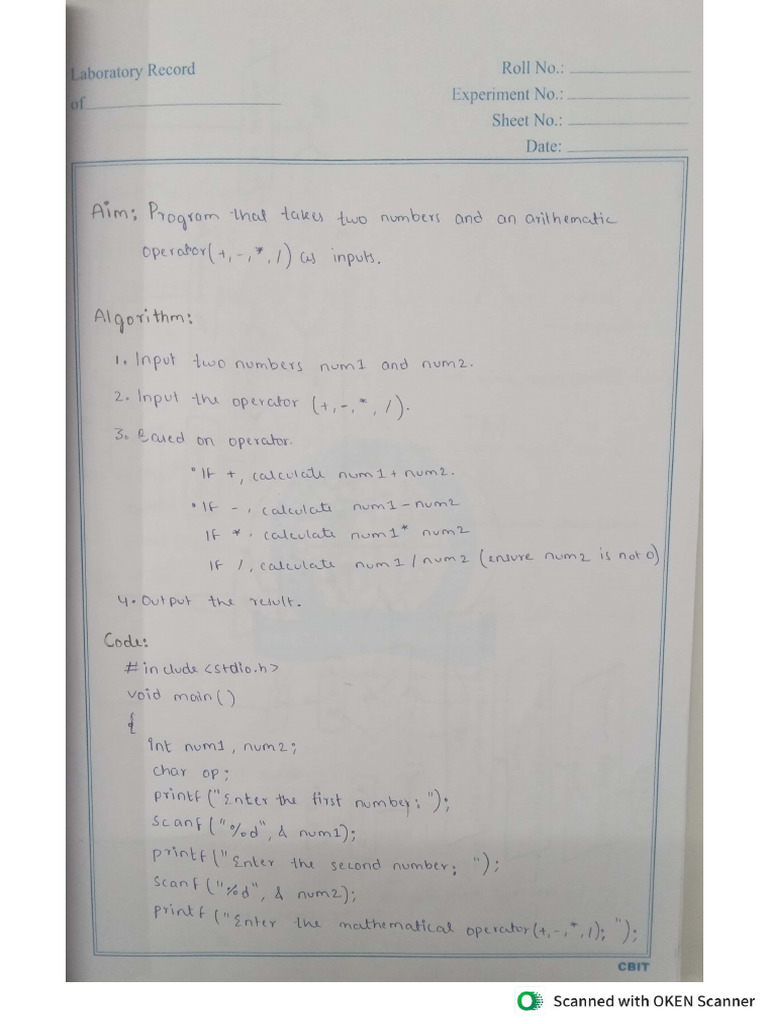 Laboratory Record
of
Roll No.:
Experiment No.:
Sheet No.:
Date:
Aim: Program that takes two numbers and an arithematic
operator(+,-,*,/) as inputs.
Algorithm:
1. Input two numbers num1 and num2.
2. Input the operator (+,-,*,/).
3. Based on operator.
• If +, calculate num1+num2.
• If -, calculate num1-num2
If *, calculate num1* num2
If /, calculate num1/num2 (ensure num2 is not 0)
4. Output the result.
Code:
#include<stdio.h>
void main()
{
int num1, num2;
char op;
printf("Enter the first number: ");
scanf("%d", & num1);
printf("Enter the second number: ");
scanf("%d", & num2);
printf("Enter the mathematical operator(+,-,*,/): ");
CBIT
Scanned with OKEN Scanner